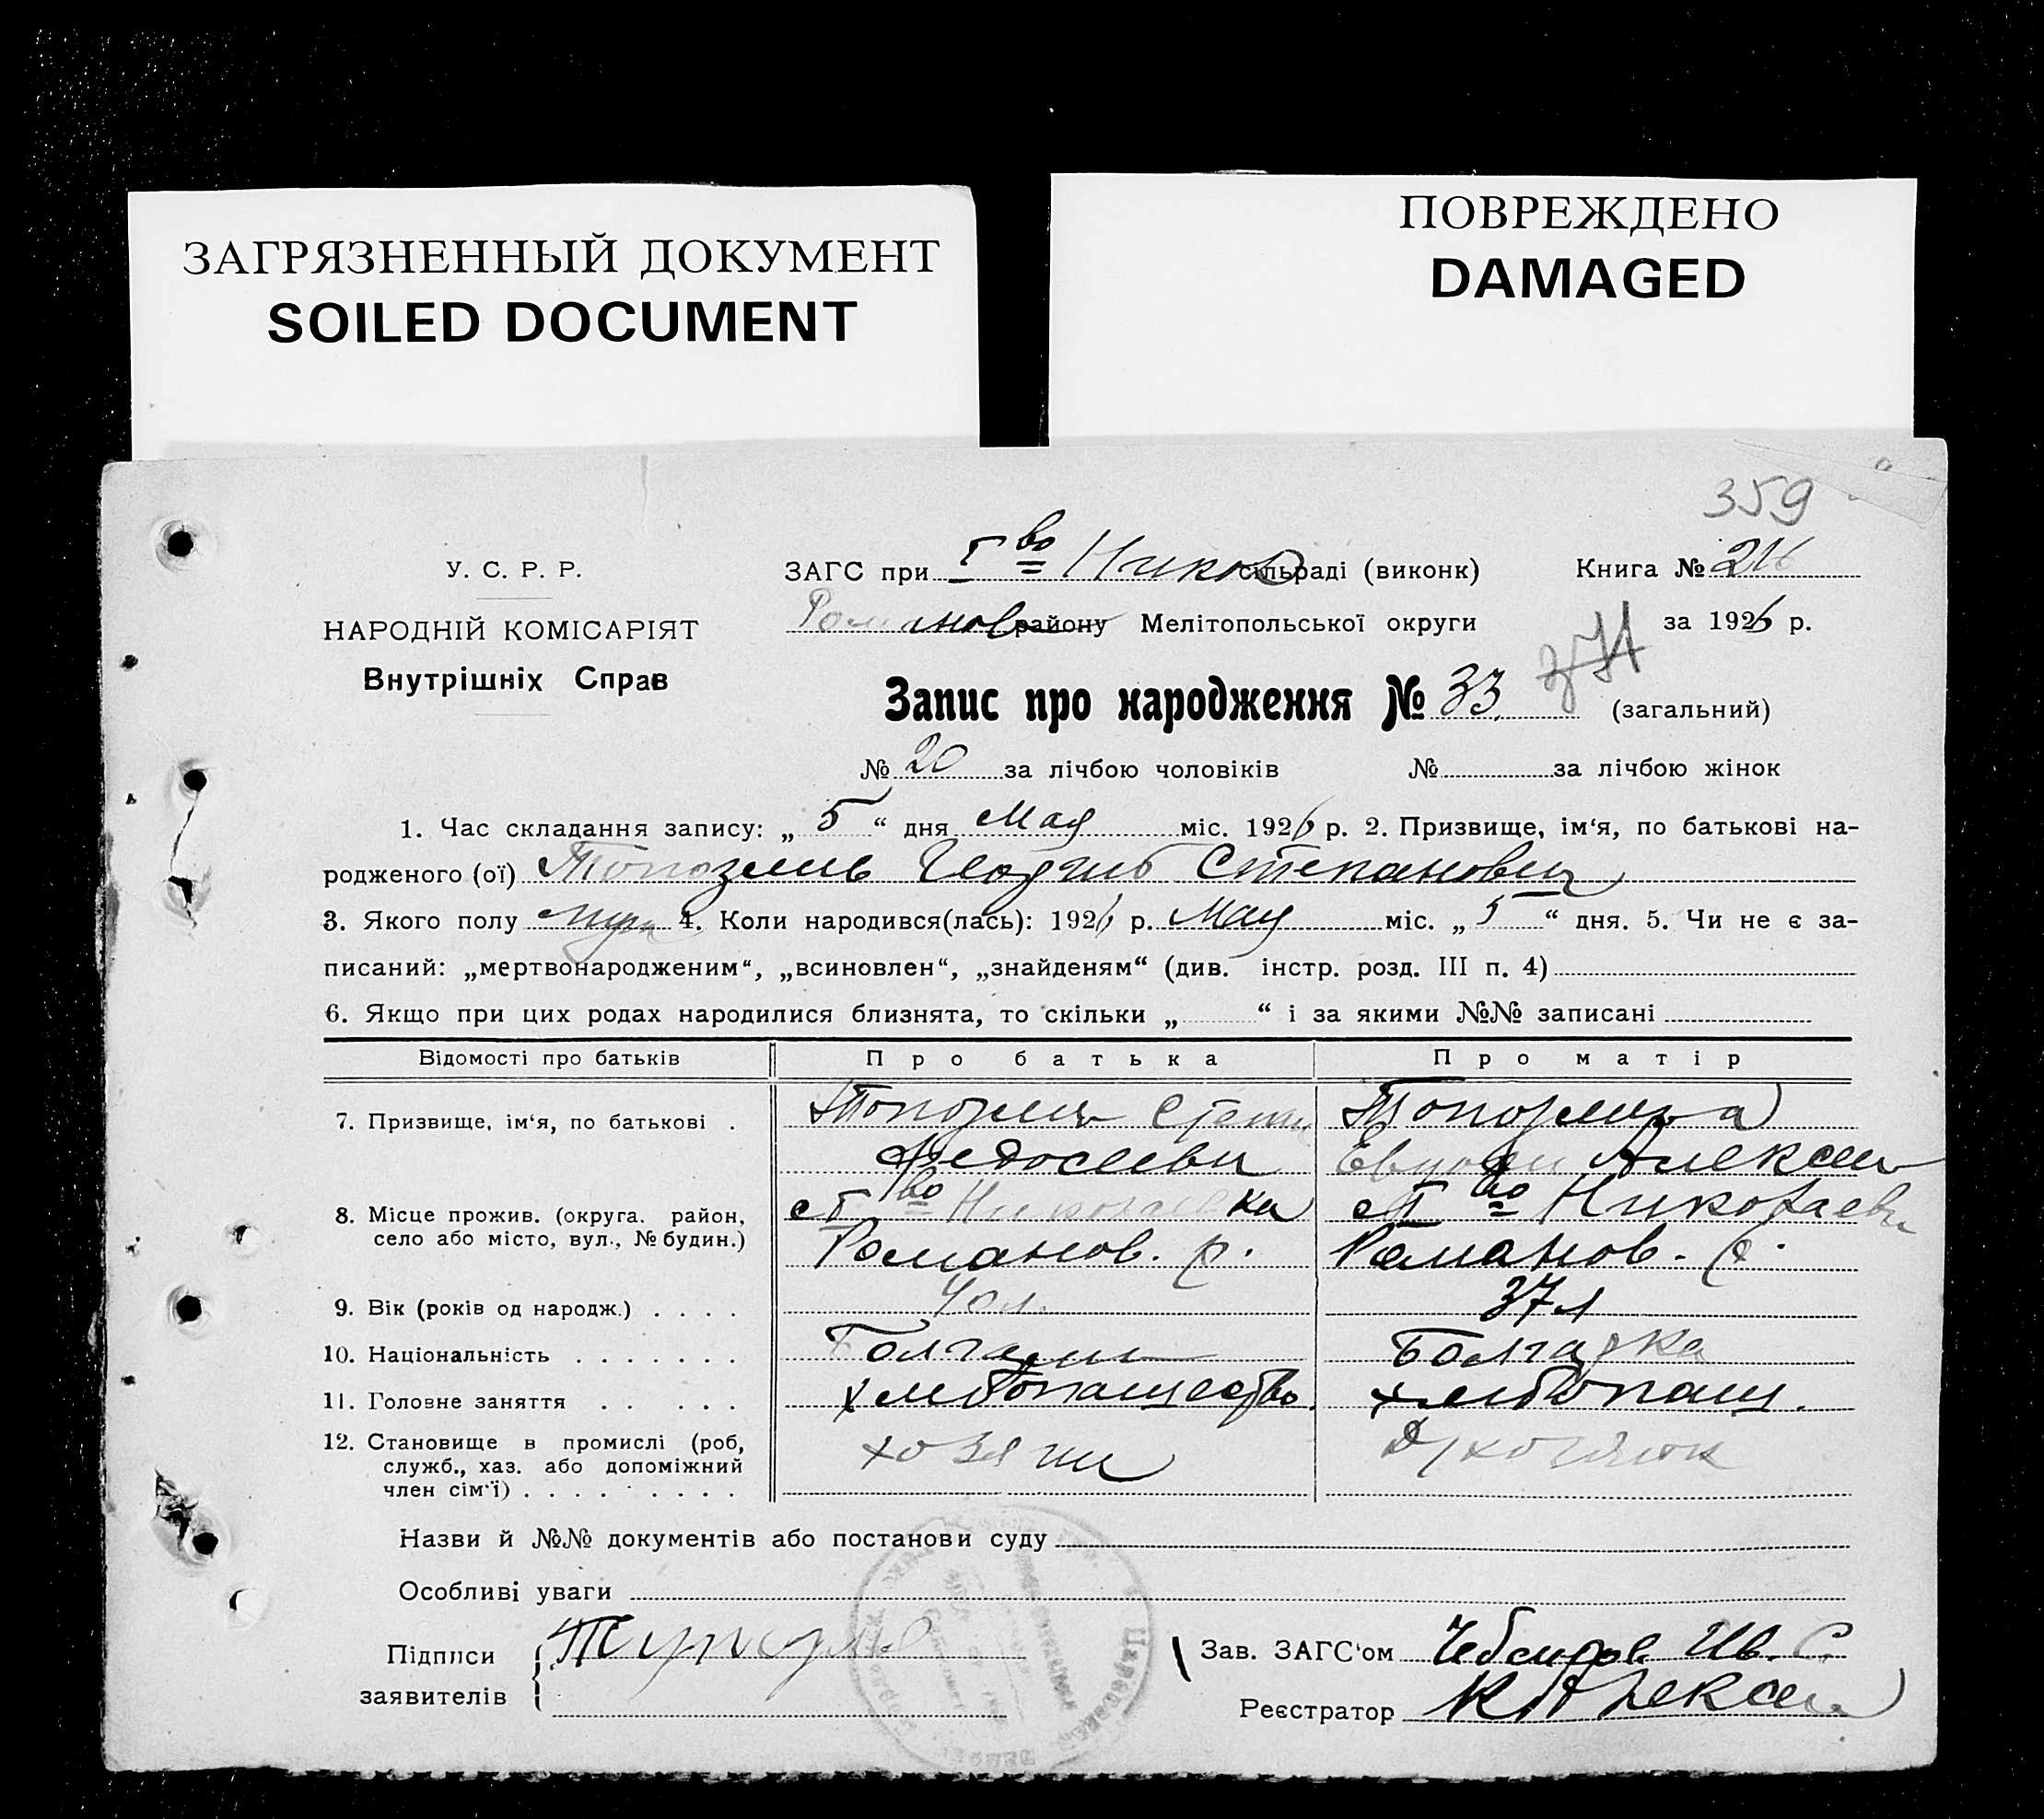 ЗАГРЯЗНЕННЫЙ ДОКУМЕНТ
SOILED DOCUMENT
ПОВРЕЖДЕНО
DAMAGED
359
У. С. Р. Р.
НАРОДНІЙ КОМІСАРІЯТ
Внутрішніх Справ
ЗАГС при І во Никол сільраді (виконк) Книга №
Романов району Мелітопольської округи за 1926 р.
Запис про народження № 33 (загальний)
№ 20 за лічбою чоловіків № за лічбою жінок
1. Час складання запису: „ 5 “ дня Мая міс. 1926 р. 2. Призвище, ім‘я, по батькові на-
родженого (ої) Топозлиъ Георгиѣ Степанович
3. Якого полу муж 4. Коли народився(лась): 1926 р. Мая міс. „ 5 “ дня. 5. Чи не є за-
писаний: „мертвонародженим“, „всиновлен“, „знайденям“ (див. інстр. розд. III п. 4)
6. Якщо при цих родах народилися близнята, то скільки „ “ і за якими №№ записані
Відомості про батьків Про батька Про матір
7. Призвище, ім‘я, по батькові .
Федосееви Алексеев
8. Місце прожив. (округа, район, село або місто, вул., № будин.) ст во Николаевка ст во Николаевк
Романов. р. Романов. р.
9. Вік (років од народж.) . . . . 40 л. 37 л
10. Національність . . . . . . . Болгарин Болгарка
11. Головне заняття . . . . . хлѣбопашество хлѣбопаш.
12. Становище в промислі (роб, служб., хаз. або допоміжний член сім‘ї) . . . . . . . . . хозяин
Назви й №№ документів або постанови суду
Особливі уваги
Підписи заявителів
Зав. ЗАГС‘ом Ив. С.
Реєстратор К Алексеи